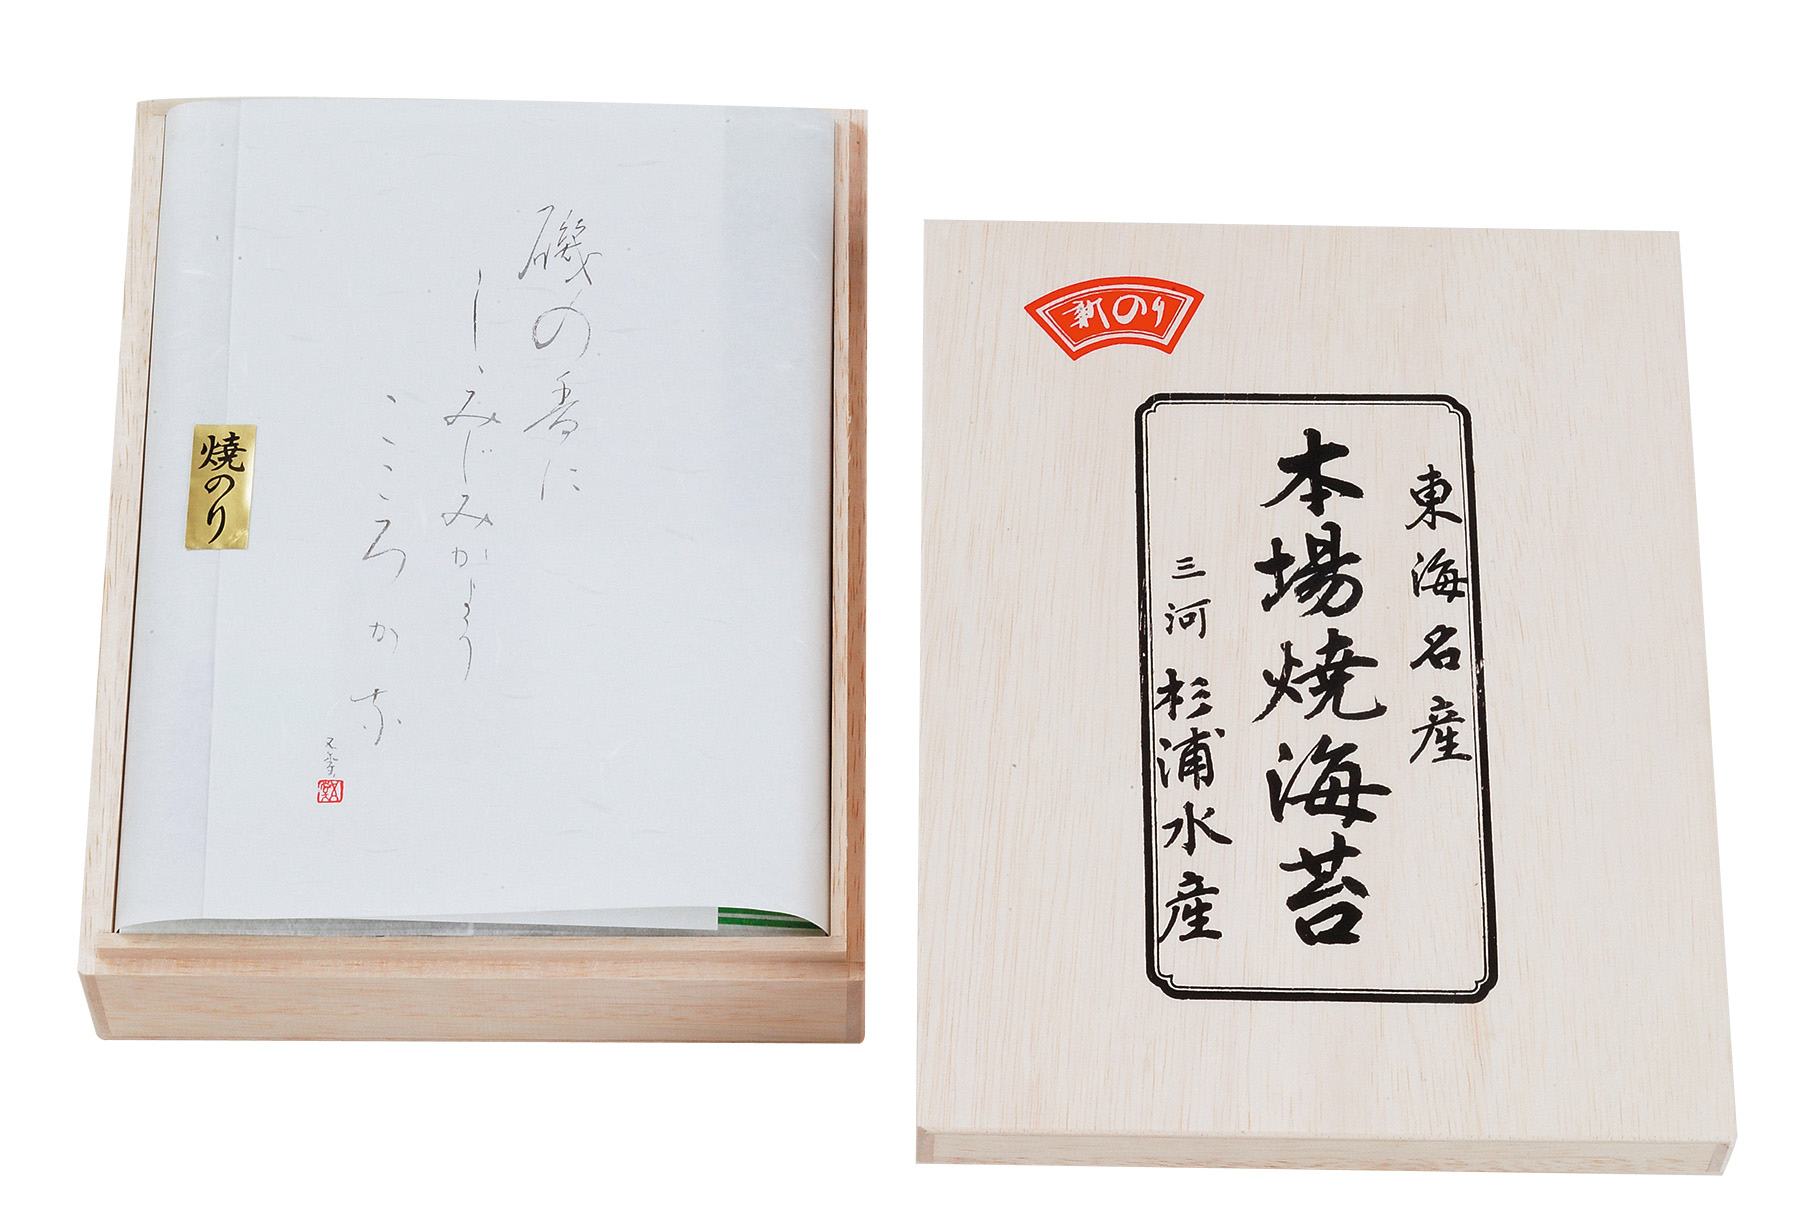 磯の香に
しみじみかよう
こころかな
焼のり
新のり
東海名産
本場焼海苔
三河 杉浦水産